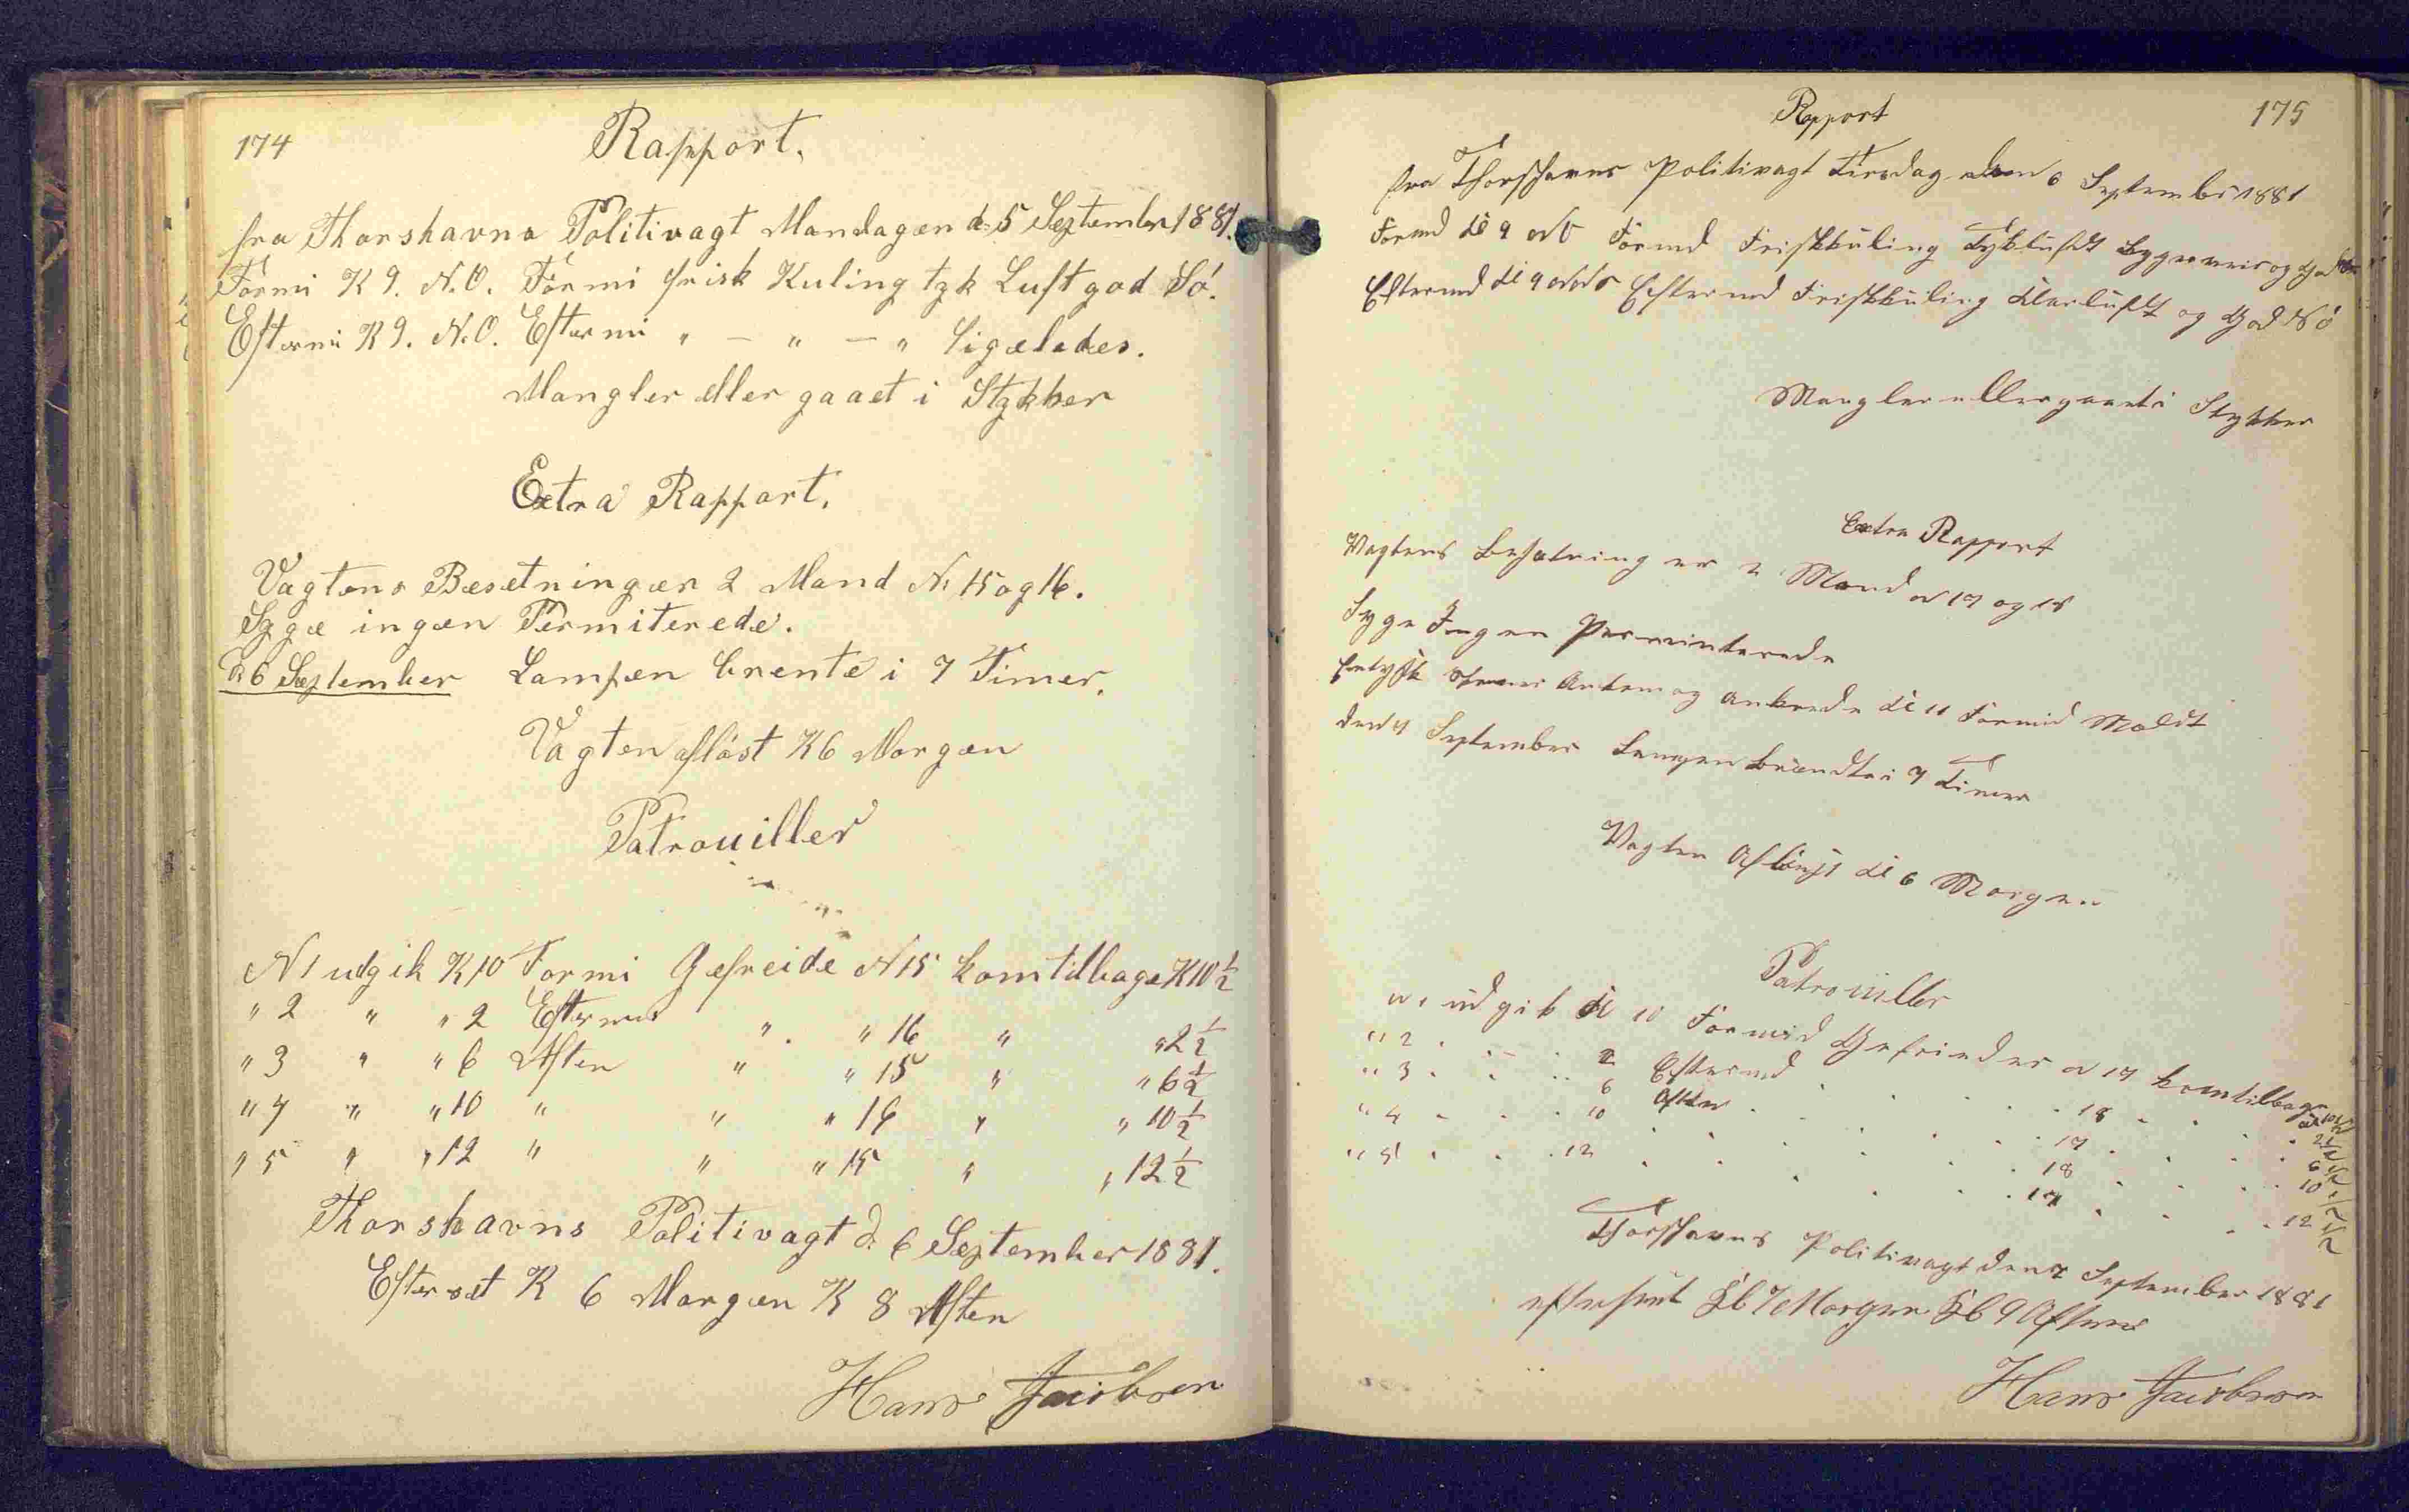 174
Rapport.
fra Thorshavns Politivagt Mandagen d: 5 September 1881.
Formi K 9. N.O. Formi frisk Kuling tyk Luft god Sö.
Eftermi K 9. N.O. Eftermi „ — „ — „ ligeledes.
Mangler eller gaaet i Stykker
Extra Rapport.
Vagtens Besetning er 2 Mand N: 15 og 16.
Syge ingen Permiterede.
d: 6 September Lampen brente i 7 Timer.
Vagten aflöst K 6 Morgen
Patrouiller
N 1 udgik K 10 Formi Gefreide N 15 kom tilbage K 10 1/2
„ 2 „ „ 2 Eftermi „ „ 16 „ „ 2 1/2
„ 3 „ „ 6 Aften „ „ 15 „ „ 6 1/2
„ 4 „ „ 10 „ „ „ 16 „ „ 10 1/2
„ 5 „ „ 12 „ „ „ 15 „ „ 12 1/2
Thorshavns Politivagt d: 6 September 1881.
Efterset K 6 Morgen K 8 Aften
Hans Jacobsen
175
Rapport
fra Thorshavns Politivagt Tirsdag den 6 September 1881
Formd Kl 9 Formd Friskkuling Tykluft Bygeveir og God
Eftermd Kl 9 Eftermd Friskkuling Klarluft og God Sö
Mangler eller gaaet i Stykker
Extra Rapport
Vagtens Besætning er 2 Mand N 17 og 18
Syge Ingen Permiterede
Ankom og ankrede Kl 11 Formid
den 7 September Lampen brændte i 7 Timer
Vagten Aflöist Kl 6 Morgen
Patrouiller
N 1 udgik Kl 10 Formid Gefreider N 17 kom tilbage Kl 10 1/2
„ 2 . . - . 2 Eftermd . . . 18 . . . 2 1/2
„ 3 . . .. 6 Aften . . . 17 . . . 6 1/2
„ 4 - . . 10 . . . . 18 . . . 10 1/2
„ 5 . . . 12 . . . . 17 . . . 12 1/2
Thorshavns Politivagt den 7 September 1881
efterseet Kl 7 Morgen Kl 9 Aften
Hans Jacobsen